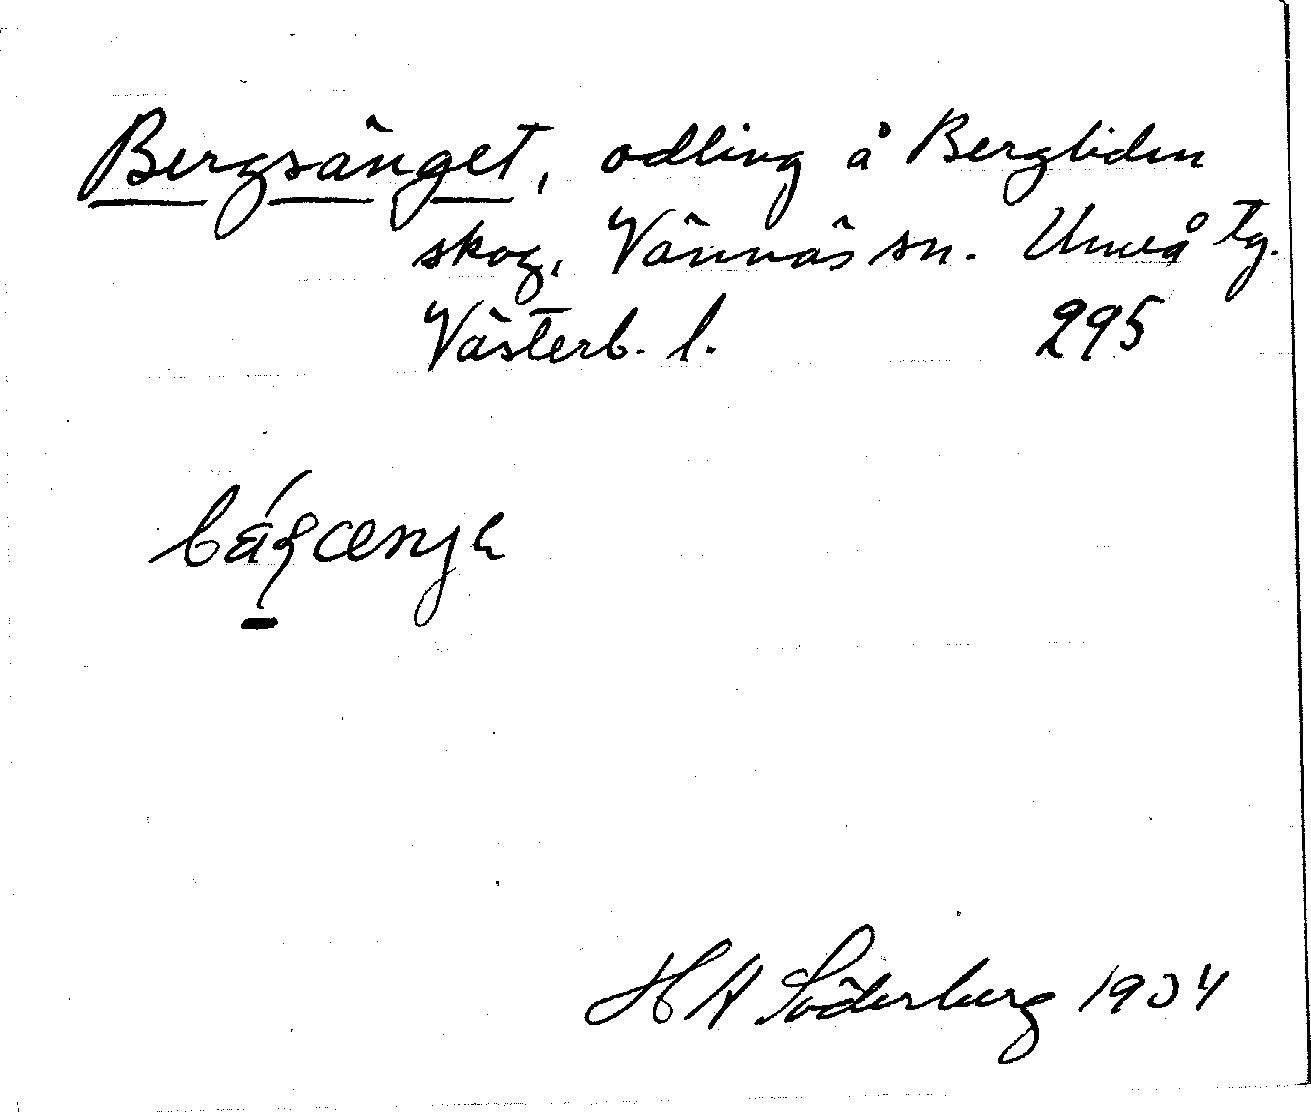 Bergsänget, odling å Bergliden
skog, Vännäs sn. Umeå tg.
Västerb. l. 295
H A Söderberg 1934